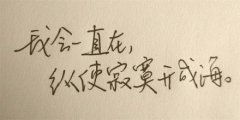 我会一直在,
纵使寂寞开成海。